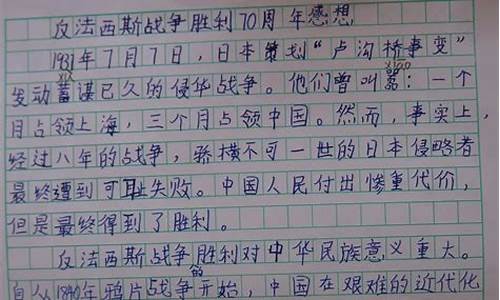 反法西斯战争胜利70周年感想
1937年7月7日，日本策划“卢沟桥事变”
xiao
发动蓄谋已久的侵华战争。他们曾叫嚣：一个
月占领上海，三个月占领中国。然而，事实上，
经过八年的战争，骄横不可一世的日本侵略者
最终遭到可耻失败。中国人民付出惨重代价，
但是最终得到了胜利。
反法西斯战争胜利对中华民族意义重大。
自从1840年鸦片战争的开始，中国在艰难的近代化